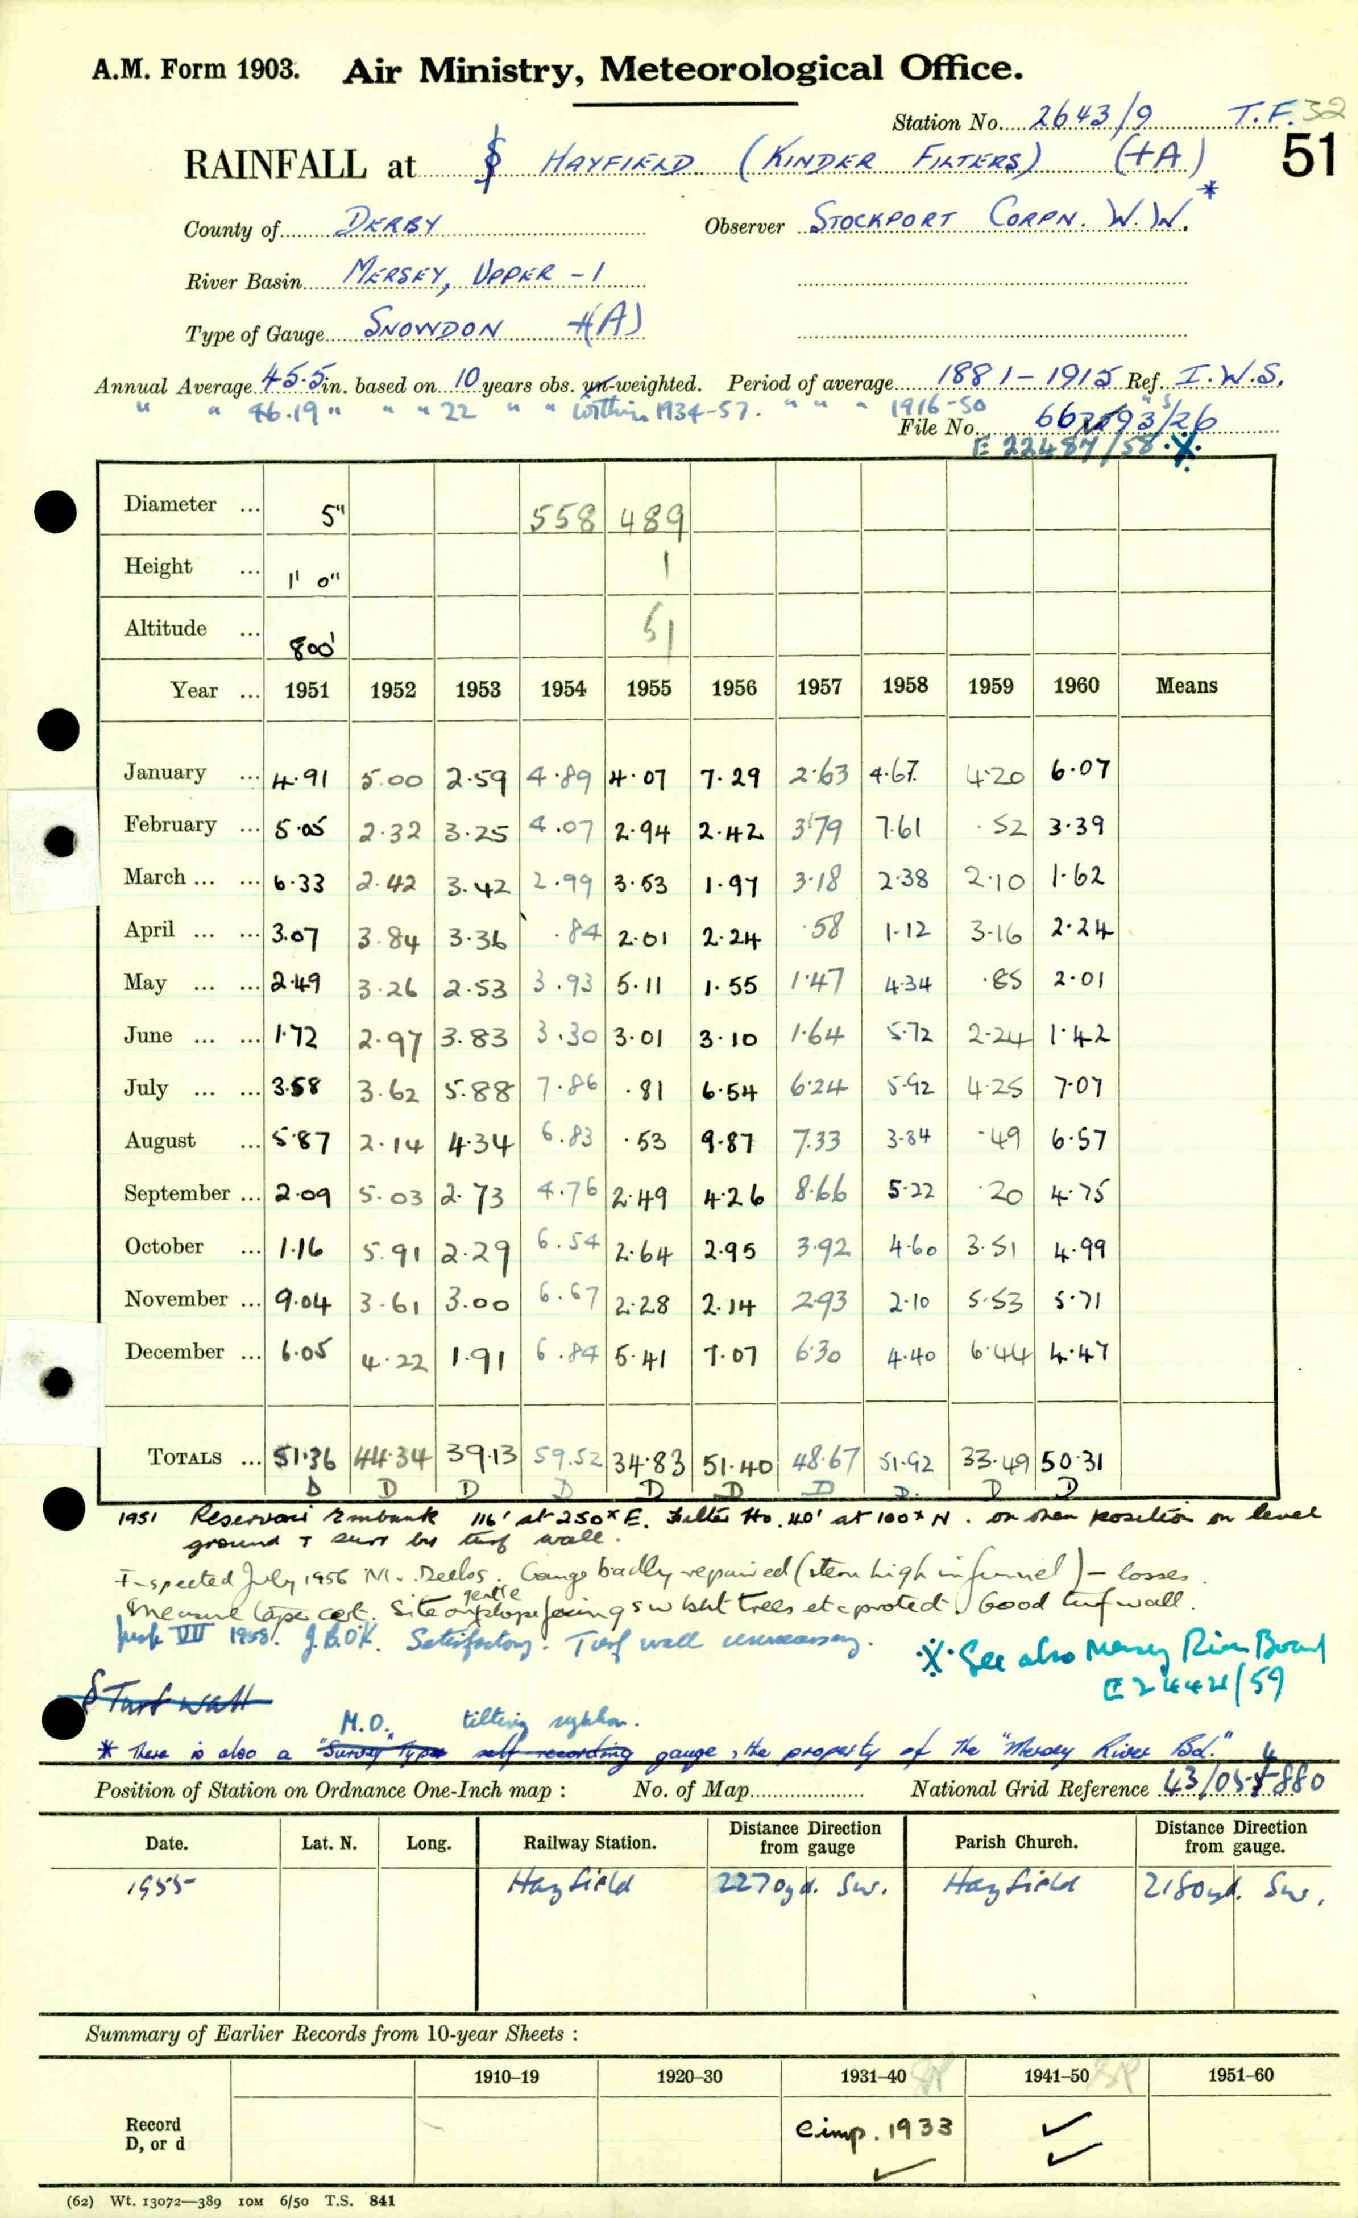 A.M. Form 1903. Air Ministry, Meteorological Office.
Station No. 2643/9 T.F. 32
RAINFALL at $ HAYFIELD (KINDER FILTERS) (+A) 51
County of DERBY Observer STOCKPORT CORPN. W.W. *
River Basin MERSEY, UPPER - 1
Type of Gauge SNOWDON +(A)
Annual Average 45.5 in. based on 10 years obs. un-weighted. Period of average 1881-1915 Ref. I.W.S.
" " 46.19 " " " 22 " " within 1934-57. " " " 1916-50
File No. 26
E 22487/58 ※
Diameter ... 5" 558 489
Height ... 1' 0" 1
Altitude ... 800' 51
Year ... 1951 1952 1953 1954 1955 1956 1957 1958 1959 1960 Means
January ... 4.91 5.00 2.59 4.89 4.07 7.29 2.63 4.67 4.20 6.07
February ... 5.05 2.32 3.25 4.07 2.94 2.42 3.79 7.61 .52 3.39
March ... ... 6.33 2.42 3.42 2.99 3.53 1.97 3.18 2.38 2.10 1.62
April ... ... 3.07 3.84 3.36 .84 2.01 2.24 .58 1.12 3.16 2.24
May ... ... 2.49 3.26 2.53 3.93 5.11 1.55 1.47 4.34 .85 2.01
June ... ... 1.72 2.97 3.83 3.30 3.01 3.10 1.64 5.72 2.24 1.42
July ... ... 3.58 3.62 5.88 7.86 .81 6.54 6.24 5.92 4.25 7.07
August ... 5.87 2.14 4.34 6.83 .53 9.87 7.33 3.84 .49 6.57
September ... 2.09 5.03 2.73 4.76 2.49 4.26 8.66 5.22 .20 4.75
October ... 1.16 5.91 2.29 6.54 2.64 2.95 3.92 4.60 3.51 4.99
November ... 9.04 3.61 3.00 6.67 2.28 2.14 2.93 2.10 5.53 5.71
December ... 6.05 4.22 1.91 6.84 5.41 7.07 6.30 4.40 6.44 4.47
TOTALS ... 51.36 44.34 39.13 59.52 34.83 51.40 48.67 51.92 33.49 50.31
D D D D D D D D. D D
1951 Reservoir Embank 116' at 250x E. Filter Ho. 40' at 100x N. on open position on level
ground + surr by turf wall.
Inspected July 1956 Gauge badly repaired (stem high in funnel) - losses.
Measure Site on gentle slope facing SW but trees etc protect. Good turf wall.
VII 1958. Satisfactory. Turf wall unnecessary.
※ See also Mersey River Board
E 2442/59
§ Turf wall
M.O. tilting syphon.
* There is also a "Survey" Type self recording gauge, the property of the "Mersey River Bd."
Position of Station on Ordnance One-Inch map : No. of Map National Grid Reference 43/054880
Date. Lat. N. Long. Railway Station. Distance Direction from gauge Parish Church. Distance Direction from gauge.
1955 Hayfield 2270yd. SW. Hayfield 2180yd. SW.
Summary of Earlier Records from 10-year Sheets :
1910–19 1920–30 1931–40 1941–50 1951–60
Record
D, or d
Comp. 1933 ✓ ✓ ✓
(62) Wt. 13072—389 10M 6/50 T.S. 841